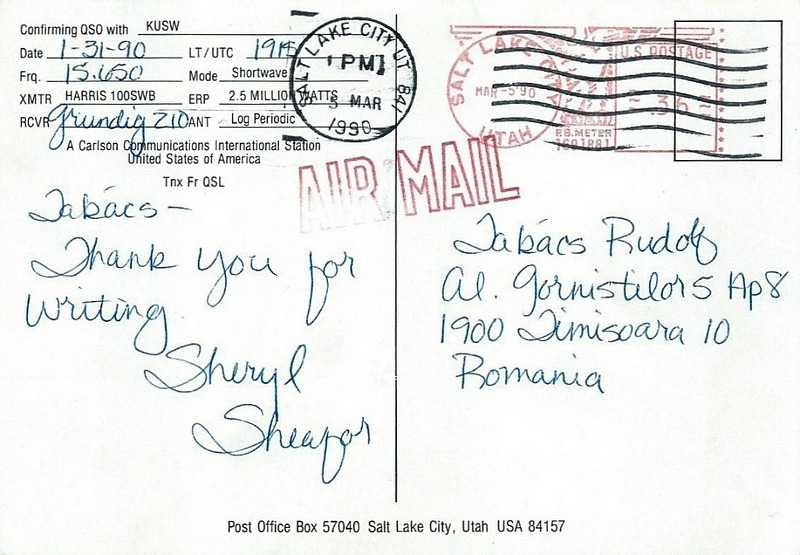 Confirming QSO with KUSW
Date 1-31-90 LT/UTC 1915
Frq. 15.650 Mode Shortwave
XMTR HARRIS 100SWB ERP 2.5 MILLION WATTS
RCVR Grundig 210 ANT Log Periodic
A Carlson Communications International Station
United States of America
Tnx Fr QSL
SALT LAKE CITY UT 841
PM
5 MAR
1990
SALT LAKE CITY
MAR-5'90
UTAH
U.S. POSTAGE
.36
P.B. METER
AIR MAIL
Takács –
Thank you for
writing.
Sheryl
Sheafor
Takács Rudolf
Al. Gornistilor 5 Ap 8
1900 Timisoara 10
Romania
Post Office Box 57040 Salt Lake City, Utah USA 84157